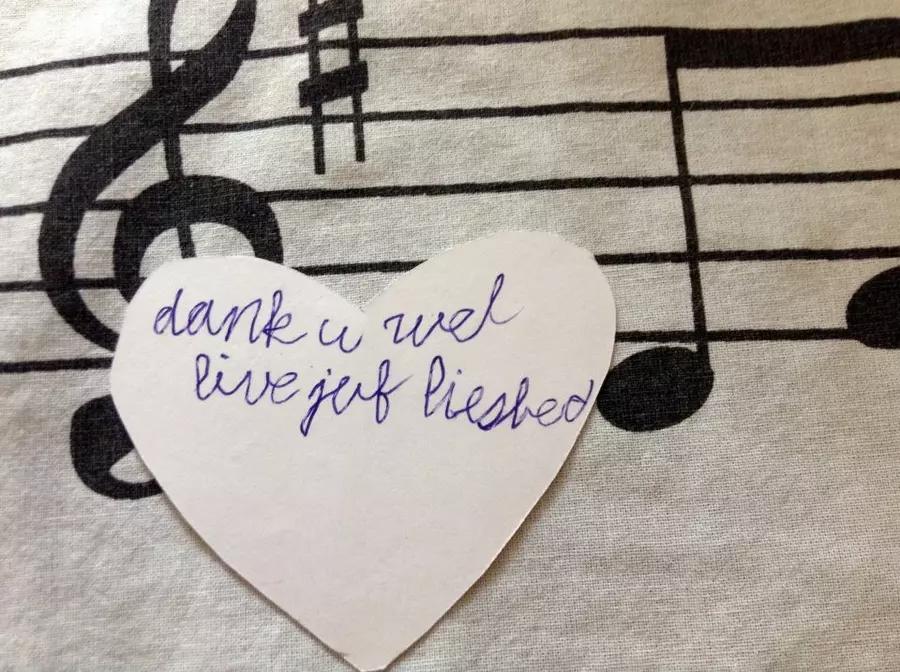 dank u wel
live juf liesbed